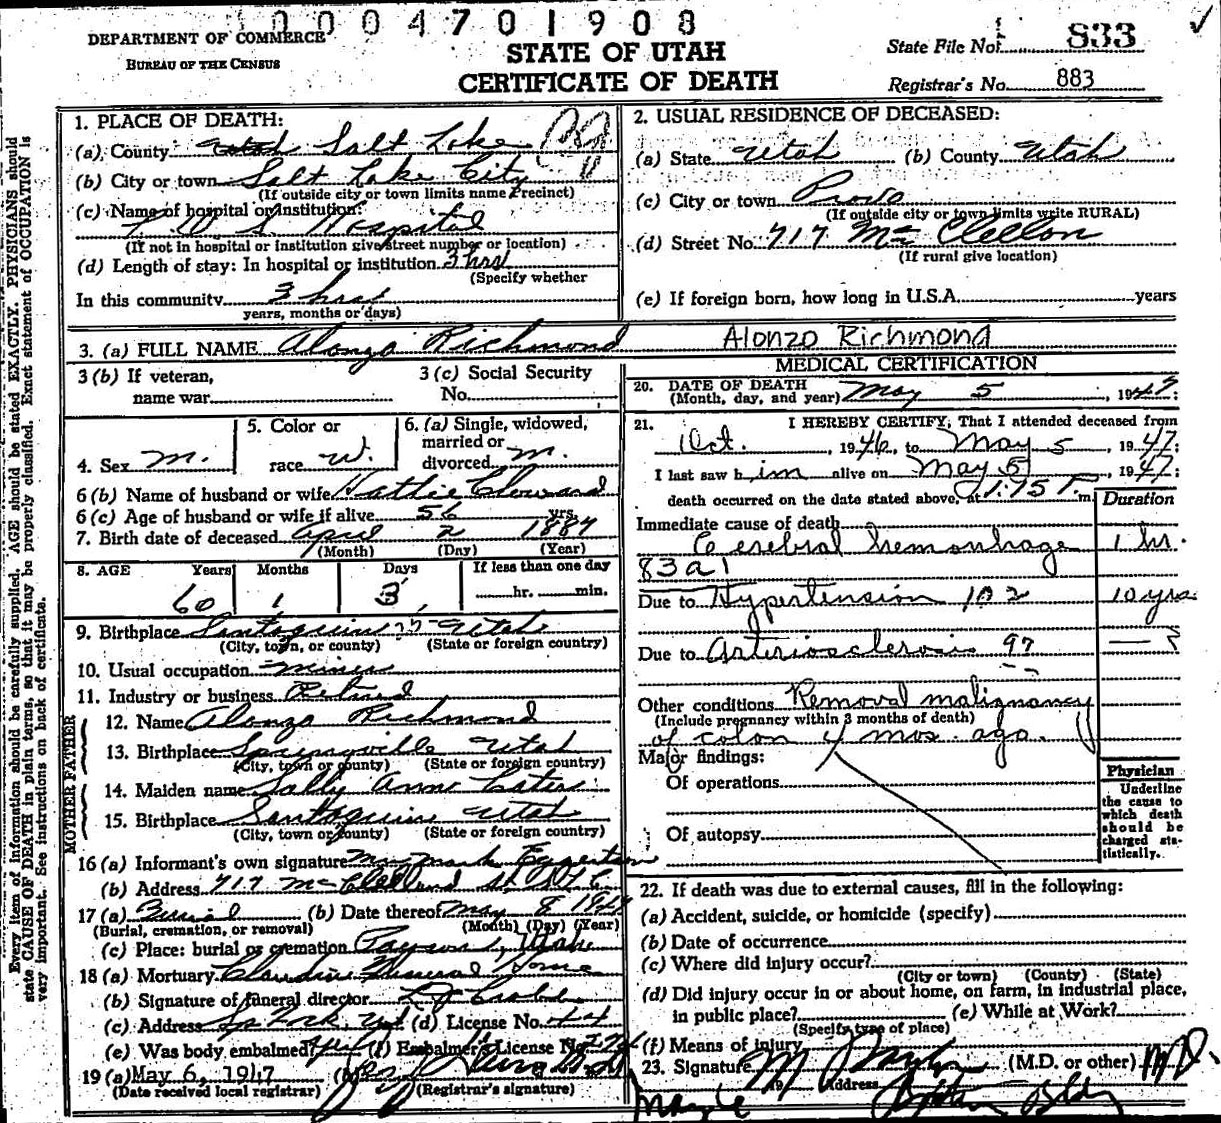 0004701908
DEPARTMENT OF COMMERCE
BUREAU OF THE CENSUS
STATE OF UTAH
CERTIFICATE OF DEATH
State File No. 833
Registrar's No. 883
Every item of information should be carefully supplied. AGE should be stated EXACTLY. PHYSICIANS should
state CAUSE OF DEATH in plain terms, so that it may be properly classified. Exact statement of OCCUPATION is
very important. See instructions on back of certificate.
1. PLACE OF DEATH:
(a) County Utah Salt Lake
(b) City or town Salt Lake City
(If outside city or town limits name Precinct)
(c) Name of hospital or institution:
L. D. S. Hospital
(If not in hospital or institution give street number or location)
(d) Length of stay: In hospital or institution 3 hrs
(Specify whether
In this community 3 hrs
years, months or days)
2. USUAL RESIDENCE OF DECEASED:
(a) State Utah (b) County Utah
(c) City or town Provo
(If outside city or town limits write RURAL)
(d) Street No. 717 Mc Clellon
(If rural give location)
(e) If foreign born, how long in U.S.A. years
3. (a) FULL NAME Alonzo Richmond Alonzo Richmond
3 (b) If veteran,
name war
3 (c) Social Security
No.
4. Sex M.
5. Color or
race W.
6. (a) Single, widowed,
married or
divorced M.
6 (b) Name of husband or wife Hattie Cloward
6 (c) Age of husband or wife if alive 56 yrs.
7. Birth date of deceased April 2 1887
(Month) (Day) (Year)
8. AGE Years Months Days If less than one day
60 1 3 hr. min.
9. Birthplace Santaquin Utah
(City, town, or county) (State or foreign country)
10. Usual occupation Miner
11. Industry or business Retired
FATHER
12. Name Alonzo Richmond
13. Birthplace Springville Utah
(City, town or county) (State or foreign country)
MOTHER
14. Maiden name Sally Anne
15. Birthplace Santaquin Utah
(City, town or county) (State or foreign country)
16 (a) Informant's own signature Mrs Mark Eggertson
(b) Address 717 McClelland St.
17 (a) Burial (b) Date thereof May 8 1947
(Burial, cremation, or removal) (Month) (Day) (Year)
(c) Place: burial or cremation Payson, Utah
18 (a) Mortuary Funeral Home
(b) Signature of funeral director
(c) Address Sp Fork, Ut (d) License No. 44
(e) Was body embalmed? Yes (f) Embalmer's License No.
19 (a) May 6, 1947 (b)
(Date received local registrar) (Registrar's signature)
MEDICAL CERTIFICATION
20. DATE OF DEATH
(Month, day, and year) May 5, 1947;
21. I HEREBY CERTIFY, That I attended deceased from
Oct., 1946, to May 5, 1947;
I last saw him alive on May 5, 1947;
death occurred on the date stated above, at 1:15 P. m.
Duration
Immediate cause of death
Cerebral hemorrhage 1 hr.
83a1
Due to Hypertension 102 10 yrs
Due to Arteriosclerosis 97 — ?
Other conditions Removal malignancy
(Include pregnancy within 3 months of death)
of colon 4 mos. ago.
Major findings:
Of operations
Of autopsy
Physician
Underline
the cause to
which death
should be
charged sta-
tistically.
22. If death was due to external causes, fill in the following:
(a) Accident, suicide, or homicide (specify)
(b) Date of occurrence
(c) Where did injury occur?
(City or town) (County) (State)
(d) Did injury occur in or about home, on farm, in industrial place,
in public place? (e) While at Work?
(Specify type of place)
(f) Means of injury
23. Signature M (M.D. or other) M.D.
Address Bldg